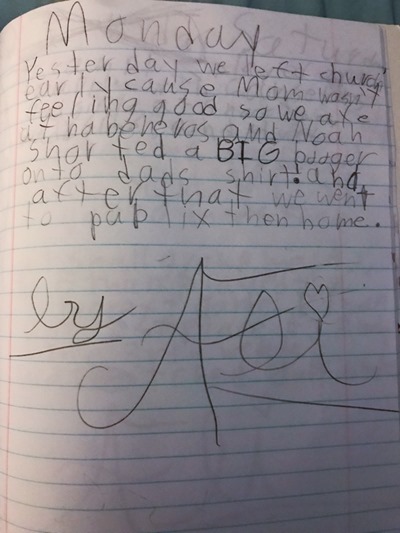 Monday
Yesterday we left church
early cause Mom wasn't
feeling good so we ate
at habeneros and Noah
shorted a BIG booger
onto dads shirt. and
after that we went
to publix then home.
by Aoi